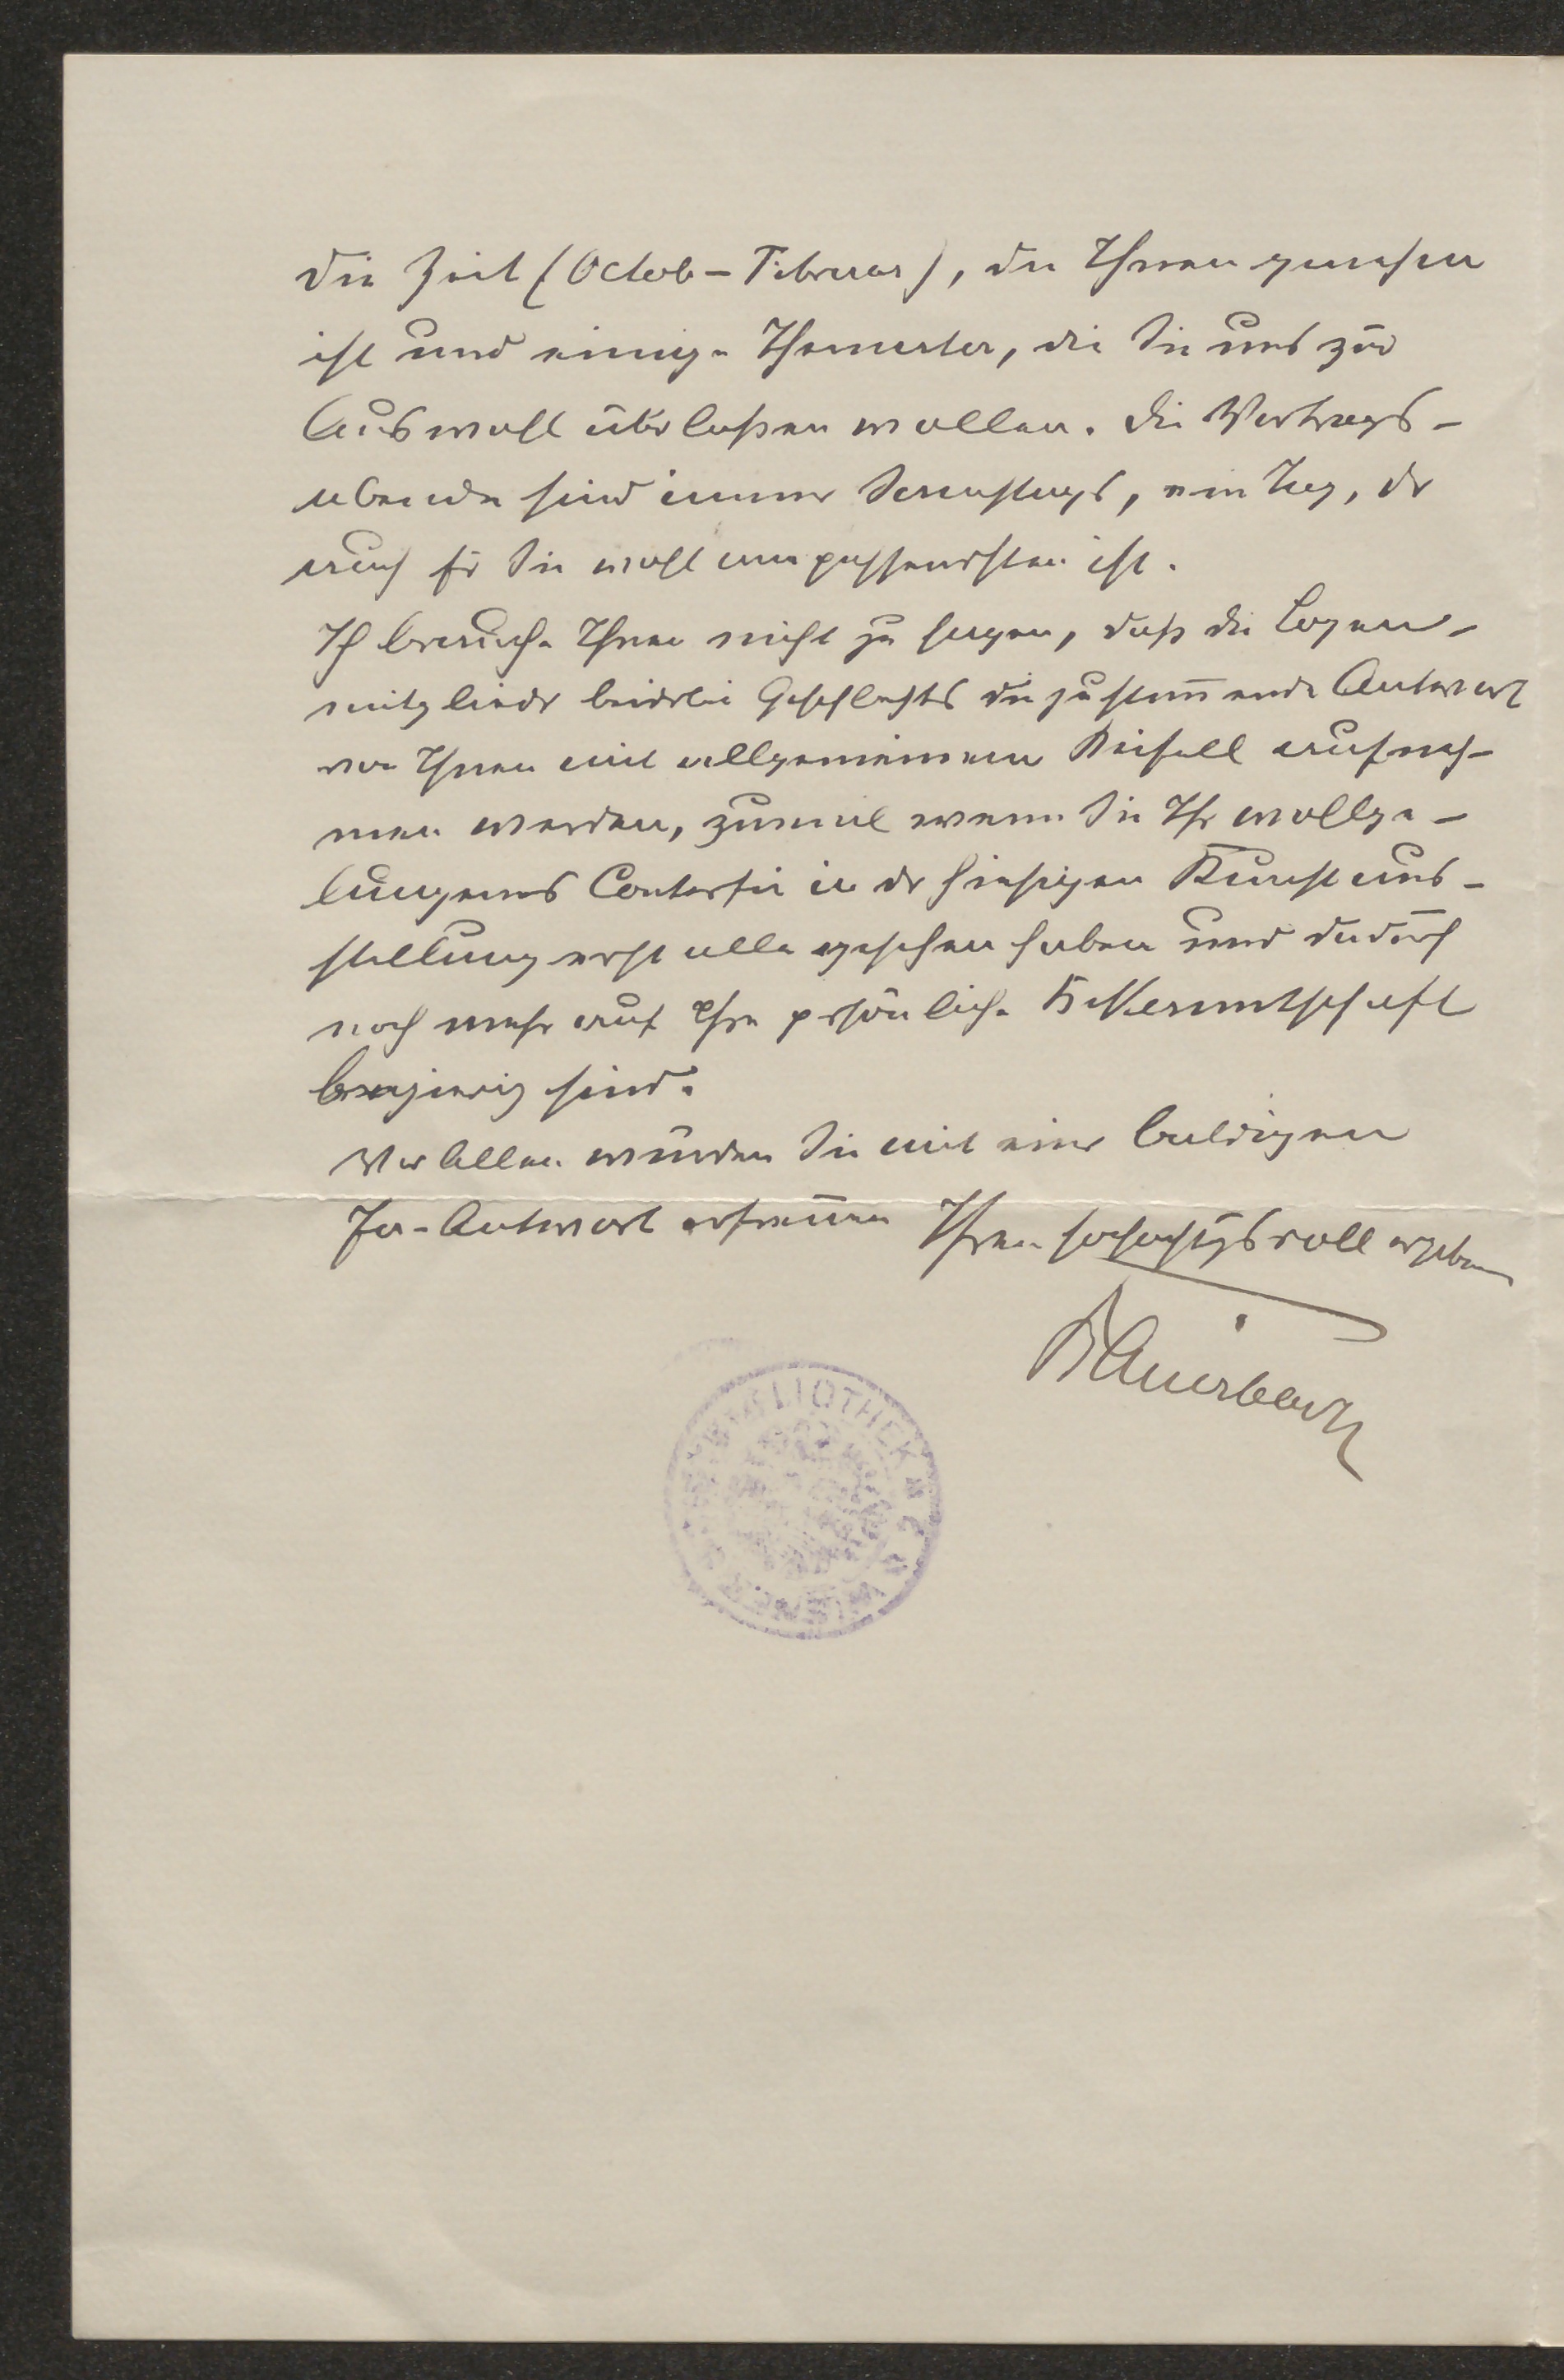 die Zeit (Octob – Februar), die Ihnen genehm
ist und einige Themata, die Sie uns zur
Auswahl überlaßen wollen. Die Vortrags-
abende sind immer Samstags, ein Tag, der
auch für Sie wohl am passendsten ist.
Ich brauche Ihnen nicht zu sagen, daß die Logen-
mitglieder beiderlei Geschlechts die zustimmende Antwort
von Ihnen mit allgemeinem Beifall aufneh-
men werden, zumal wenn Sie Ihr wollge-
lungenes Conterfei in der hiesigen Kunstaus-
stellung erst alle gesehen haben und dadurch
noch mehr auf Ihre persönliche Bekanntschaft
begierig sind.
Vor Allen würden Sie mit einer baldigen
Ja-Antwort erfreuen Ihren hochachtungsvoll ergebenen
BAuerbach
BIBLIOTHEK
WIEN